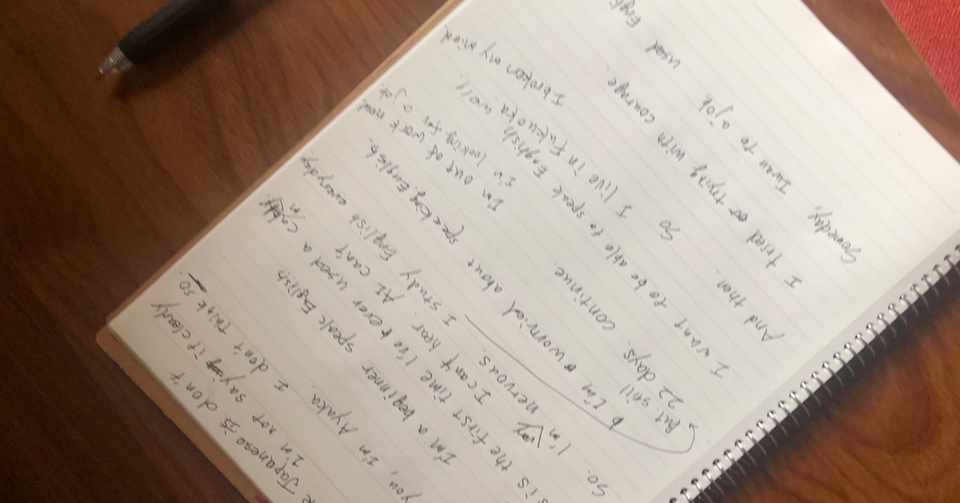 Japanese is don't
I'm not say it clearly
I don't think so
you, I'm Ayaka.
I'm a beginner speak English
is the first time I've ever used a
So, I'm nervous I can't hear AI can't
I study English everyday
but still 22 days. continue
I'm worried about speaking English.
I want to be able to speak English well,
And then, So I live in Fukuoka
I'm out of work now
I'm looking for a job
I tried or trying with courage. I broken my mind
Someday, I wan to a job used